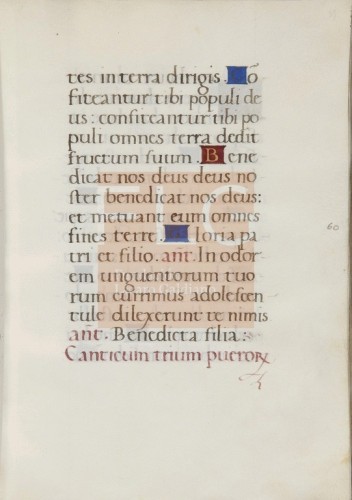 tes in terra dirigis. Co
fiteantur tibi populi de
us: confiteantur tibi po
puli omnes terra dedit
fructum suum. Bene
dicat nos deus deus no
ster benedicat nos deus:
et metuant eum omnes
fines terre. Gloria pa
tri et filio. añt. In odor
em unguentorum tuo
rum currimus adolescen
tule dilexerunt te nimis
añt. Benedicta filia:
Canticum trium pueroꝝ
60